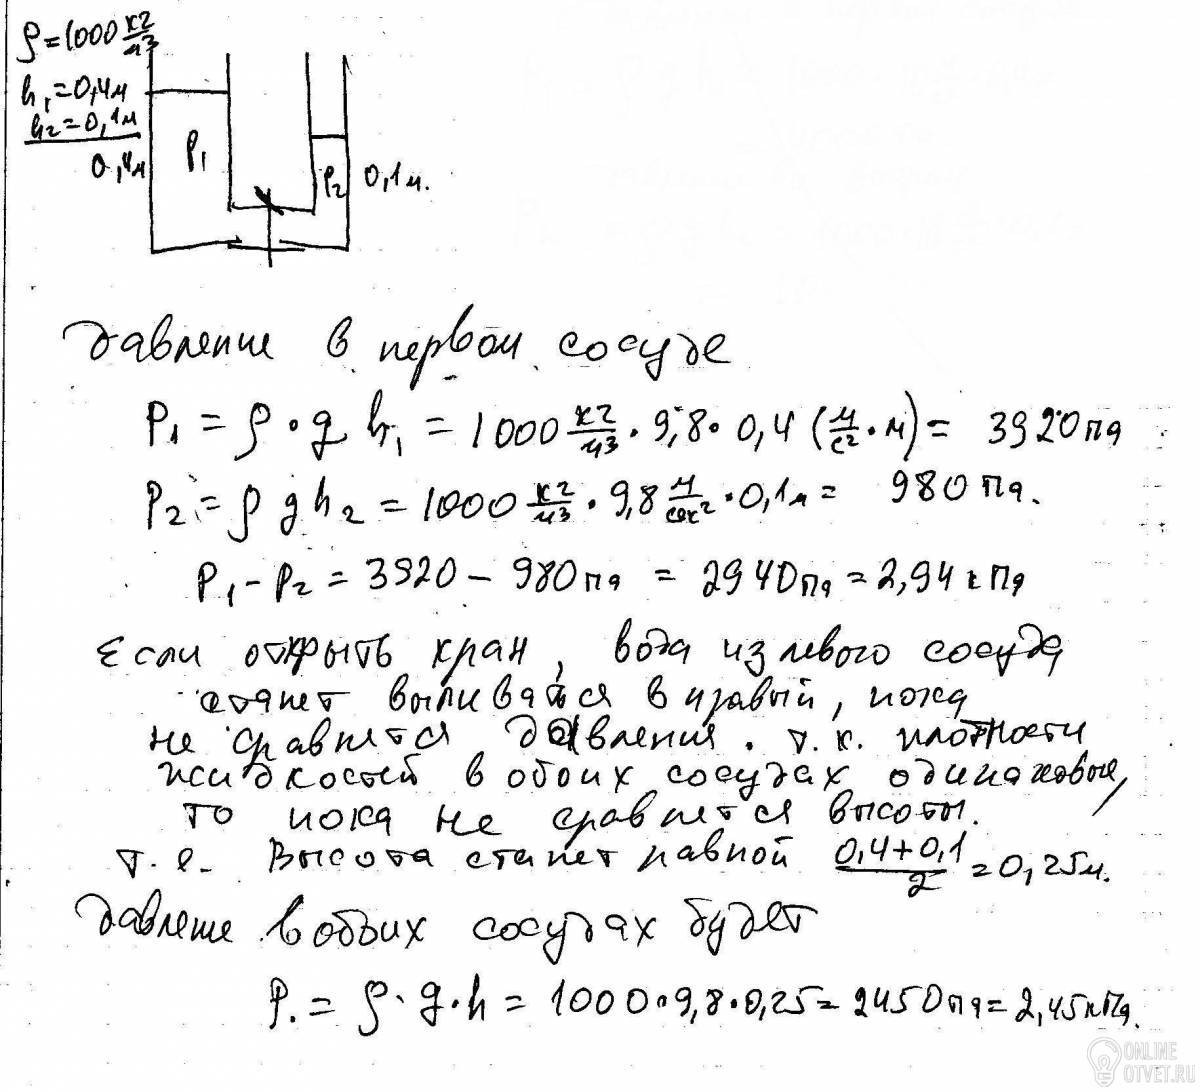 ρ = 1000 кг/м³
h₁ = 0,4м
h₂ = 0,1м
0,4м
P₁
P₂
0,1м.
Давление в первом сосуде
P₁ = ρ · g h₁ = 1000 кг/м³ · 9,8 · 0,4 (м/с² · м) = 3920 па
P₂ = ρ g h₂ = 1000 кг/м³ · 9,8 м/сек² · 0,1м = 980 Па.
P₁ - P₂ = 3920 - 980 па = 2940 Па = 2,94 кПа
Если открыть кран, вода из левого сосуда
станет выливаться в правый, пока
не сравнятся давления. т.к. плотности
жидкостей в обоих сосудах одинаковые,
то пока не сравнятся высоты.
т.е. Высота станет равной (0,4+0,1)/2 = 0,25м.
Давление в обоих сосудах будет
P. = ρ · g · h = 1000 · 9,8 · 0,25 = 2450 па = 2,45 кПа.
ONLINE
OTVET.RU